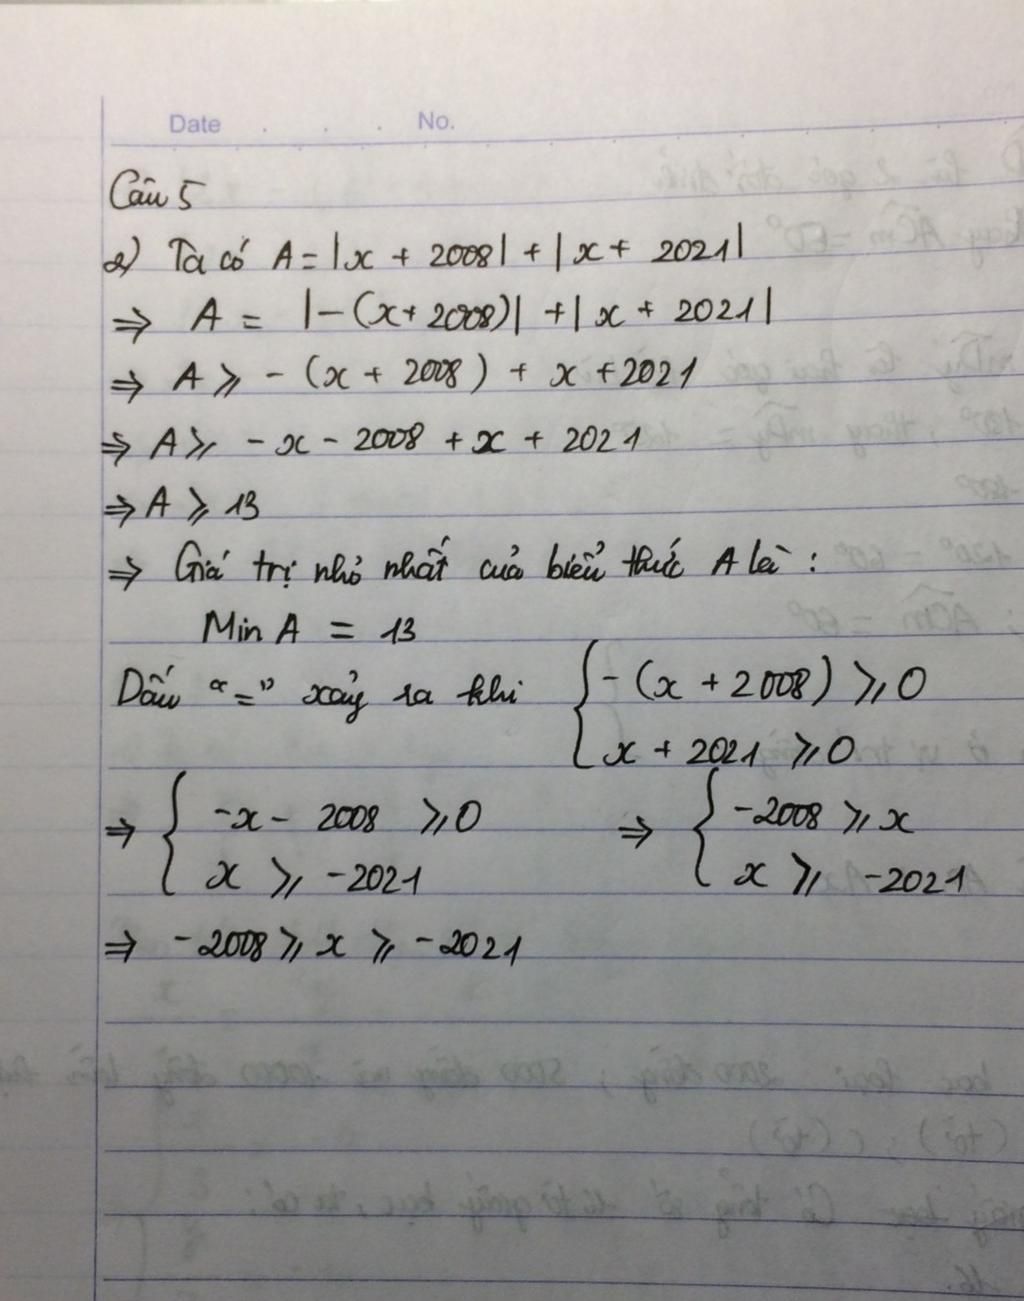 Date . . . No.
Câu 5
a) Ta có A = |x + 2008| + |x + 2021|
⇒ A = |-(x + 2008)| + |x + 2021|
⇒ A ⩾ - (x + 2008) + x + 2021
⇒ A ⩾ - x - 2008 + x + 2021
⇒ A ⩾ 13
⇒ Giá trị nhỏ nhất của biểu thức A là :
Min A = 13
Dấu "=" xảy ra khi { - (x + 2008) ⩾ 0
x + 2021 ⩾ 0
⇒ { -x - 2008 ⩾ 0 ⇒ { -2008 ⩾ x
x ⩾ -2021 x ⩾ -2021
⇒ -2008 ⩾ x ⩾ -2021